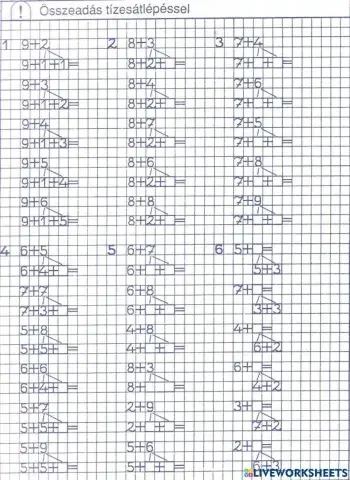 ! Összeadás tízesátlépéssel
1 9+2
9+1+1=
9+3
9+1+2=
9+4
9+1+3=
9+5
9+1+4=
9+6
9+1+5=
2 8+3
8+2+ =
8+4
8+2+ =
8+7
8+2+ =
8+6
8+2+ =
8+8
8+2+ =
3 7+4
7+ + =
7+6
7+ + =
7+5
7+ + =
7+8
7+ + =
7+9
7+ + =
4 6+5
6+4+ =
7+7
7+3+ =
5+8
5+5+ =
6+6
6+4+ =
5+7
5+5+ =
5+9
5+5+ =
5 6+7
6+ + =
6+8
6+ + =
4+8
4+ + =
8+3
8+ =
2+9
2+ + =
5+6
5+ + =
6 5+ =
5+3
7+ =
3+3
4+ =
6+2
6+ =
4+2
3+ =
7+2
2+ =
LIVEWORKSHEETS